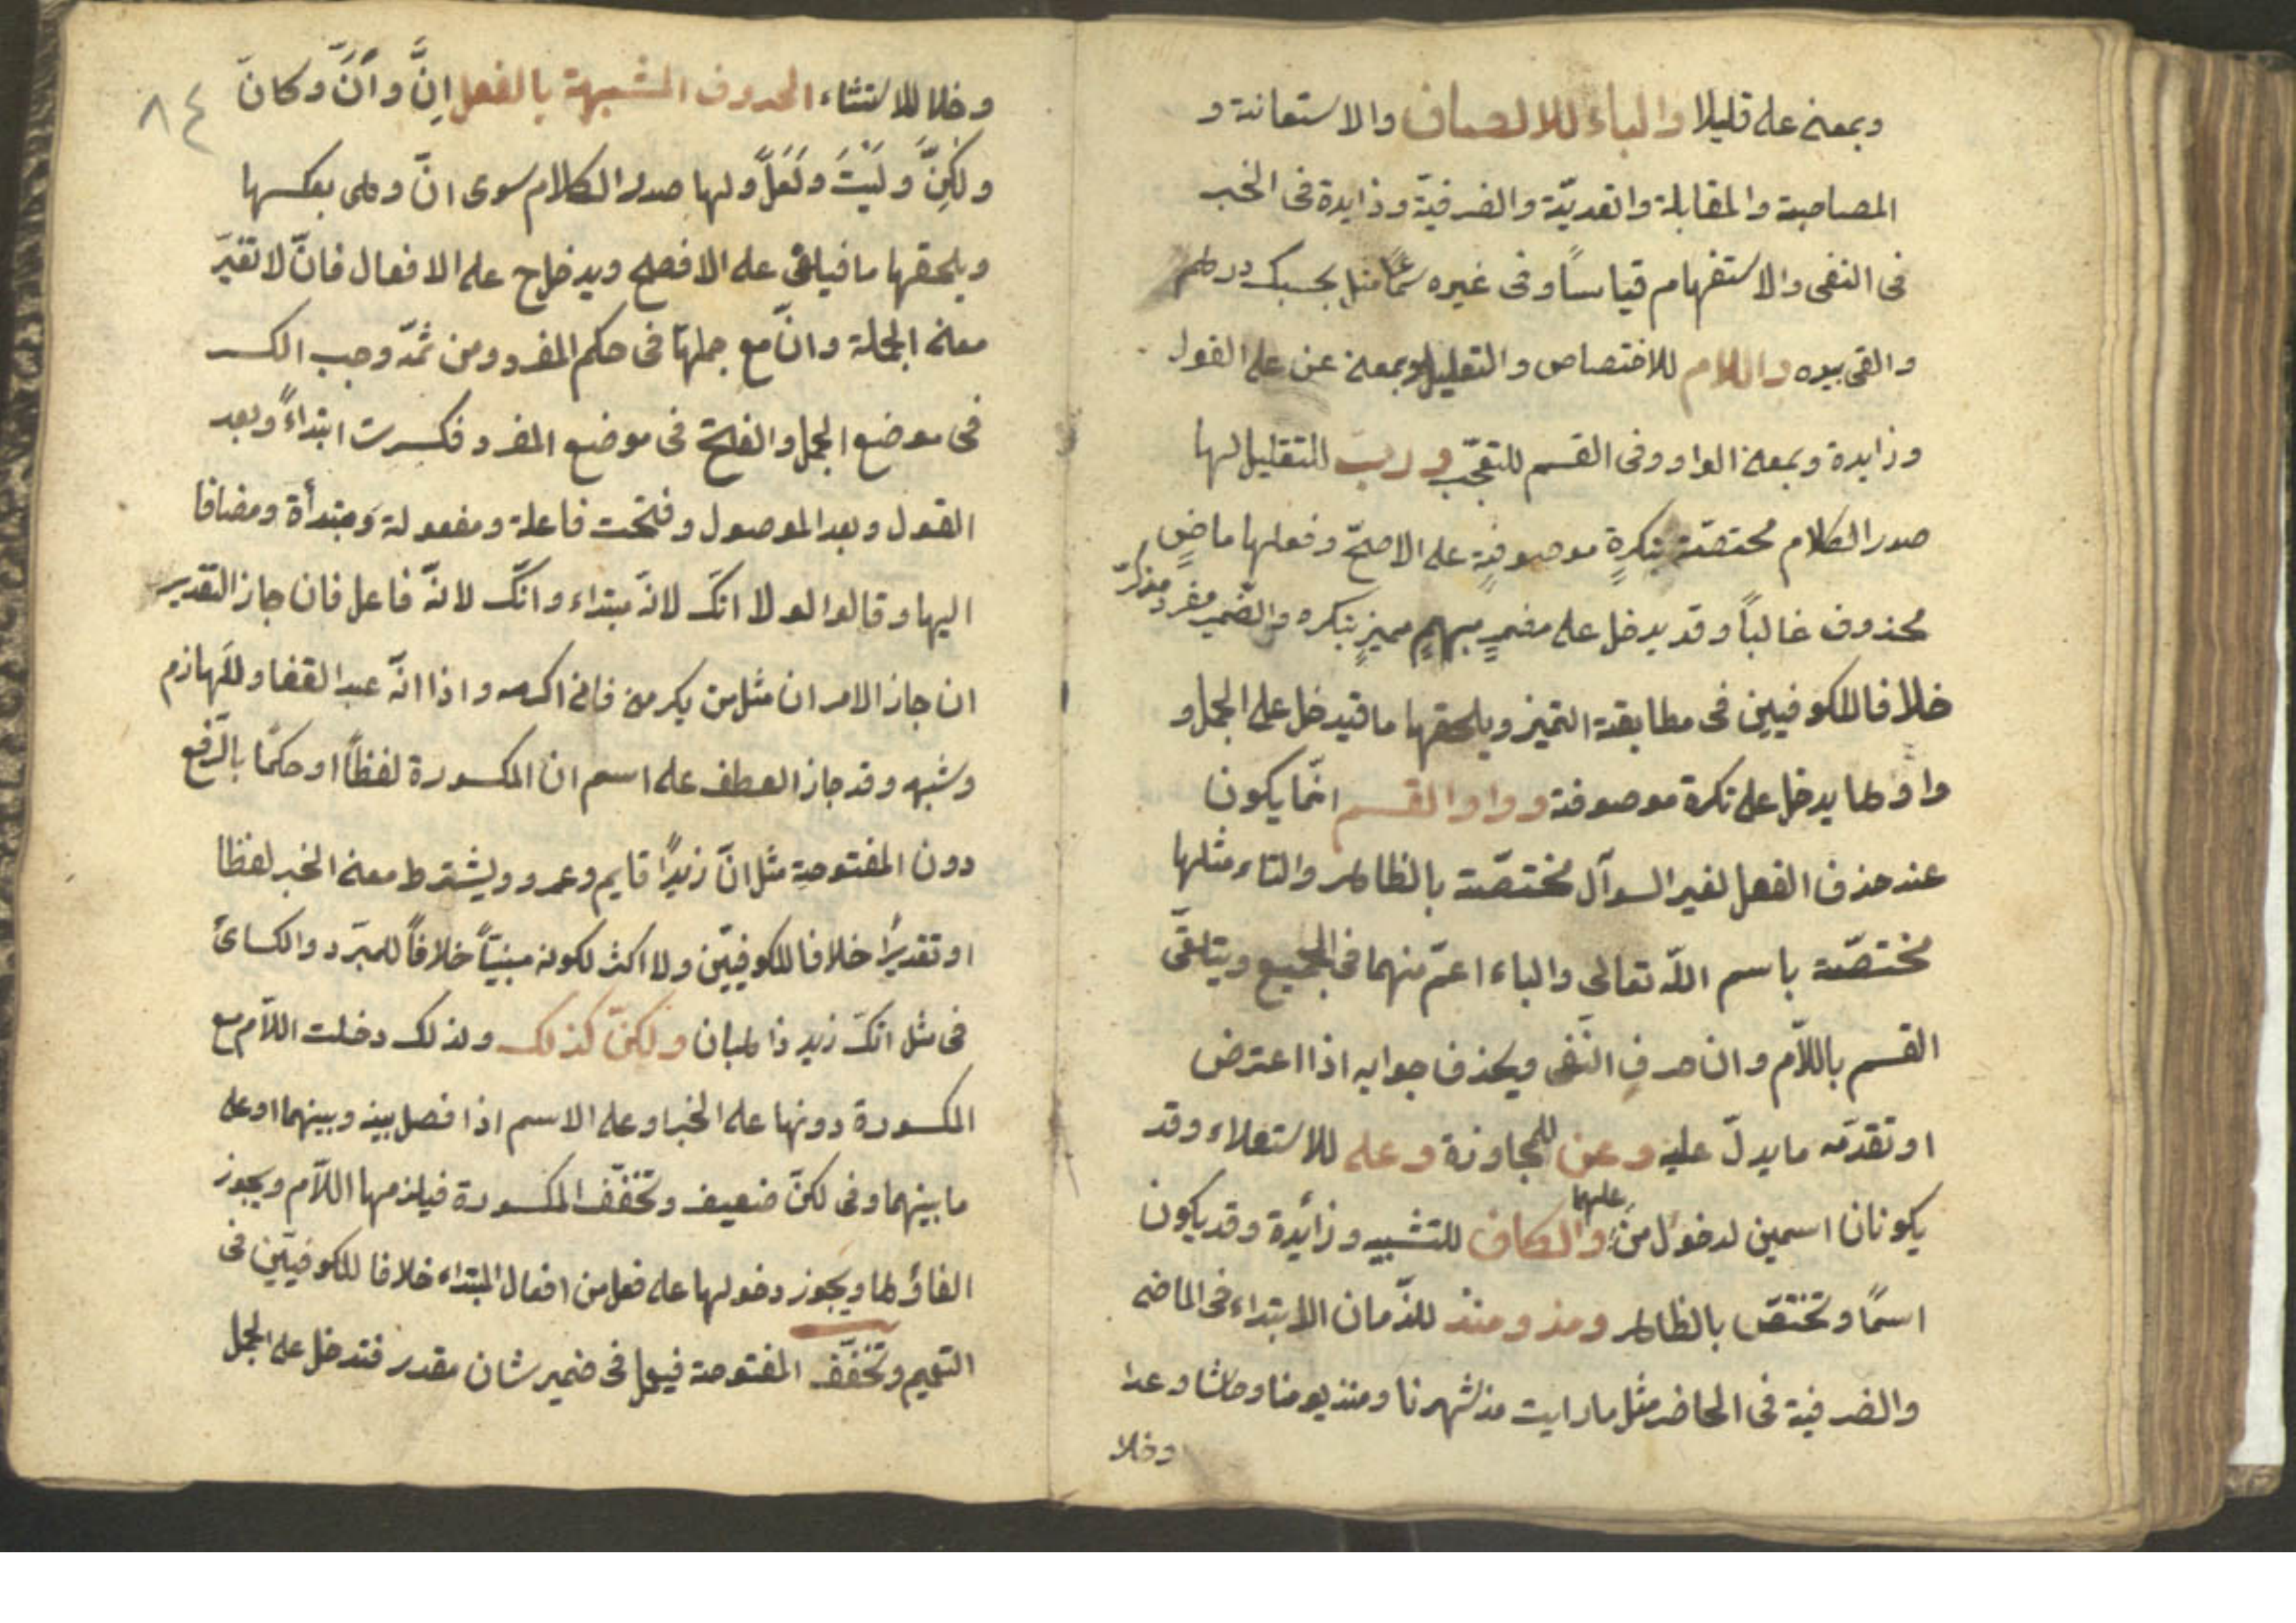 وبمعنى على قليلا والباء للالصاف والاستعانة و
المصاحبة والمقابلة والتعديّة والضرفيّة وزايدة فى الخبر
فى النفى والاستفهام قياساً وفى غيره سماعًا مثل بحسبك درهم
والقى بيده واللام للاختصاص والتعليل وبمعنى عن على القول
وزايدة وبمعنى الواو وفى القسم للتعجّب وربّ للتقليل لها
صدر الكلام مختصّة بنكرةٍ موصوفةٍ على الاصحّ وفعلها ماضٍ
محذوف غالباً وقد يدخل على مضمرٍ مبهمٍ مميزٍ بنكره والضّمير مفرد مذكرّ
خلافا للكوفيين فى مطابقة التميز ويلحقها ما فتدخل على الجمل و
واؤها يدخل على نكرة موصوفة وواو القسم انّما يكون
عند حذف الفعل لغير السوآل مختصّة بالظاهر والتاء مثلها
مختصّة باسم اللّه تعالى والباء اعمّ منهما فى الجميع ويتلقّى
القسم باللاّم وانّ حرفِ النّفى ويحذف جوابه اذا اعترض
او تقدّمه ما يدلّ عليه وعن للمجاوزة وعلى للاستعلاء وقد
يكونان اسمين لدخول من عليهما والكاف للتشبيه وزائدة وقد يكون
اسمًا وتختصّ بالظاهر ومذ ومنذ للزّمان الابتداء فى الماضى
والضرفية فى الحاضر مثل ما رايت مذ شهرنا ومنذ يومنا وحاشا وعدا
وخلا
٨٤
وخلا للاستثناء الحروف المشبهة بالفعل اِنَّ واَنَّ وكانَّ
ولكِنَّ ولَيْتَ ولَعَلَّ ولها صدر الكلام سوى انّ وهى بعكسها
ويلحقها ما فيلغى على الافصح ويدخل ح على الافعال فانّ لا تغيّر
معنى الجملة وانّ مع جملتها فى حكم المفرد ومن ثمّه وجب الكسر
فى موضع الجمل والفتح فى موضع المفرد فكسرت ابتداءً وبعد
القول وبعد الموصول وفتحت فاعلة ومفعولة ومبتدأة ومضافا
اليها وقالوا لولا انّك لانّه مبتداء وانّك لانّه فاعل فان جاز التقدير
ان جاز الامران مثل من يكرمنى فانى اكرمه واذا انّه عبد القفا وللّهازم
وشبهه وقد جاز العطف على اسم انّ المكسورة لفظاً او حكمًا بالرّفع
دون المفتوحة مثل انّ زيدًا قايم وعمرو ويشترط معنى الخبر لفظا
او تقديرًا خلافا للكوفيّين ولا اكثر لكونه مبنيّاً خلافاً للمبرّد والكسائى
فى مثل انّك زيد ذاهبان ولكنّ كذلك ولذلك دخلت اللاّم مع
المكسورة دونها على الخبر او على الاسم اذا فصل بينه وبينهما او على
ما بينهما وفى لكنّ ضعيف وتخفّف المكسورة فيلزمها اللاّم ويجوز
الغاؤها ويجوز دخولها على فعل من افعال المبتداء خلافا للكوفيّين فى
التعميم وتخفّف المفتوحة فيعمل فى ضمير شان مقدر فتدخل على الجمل